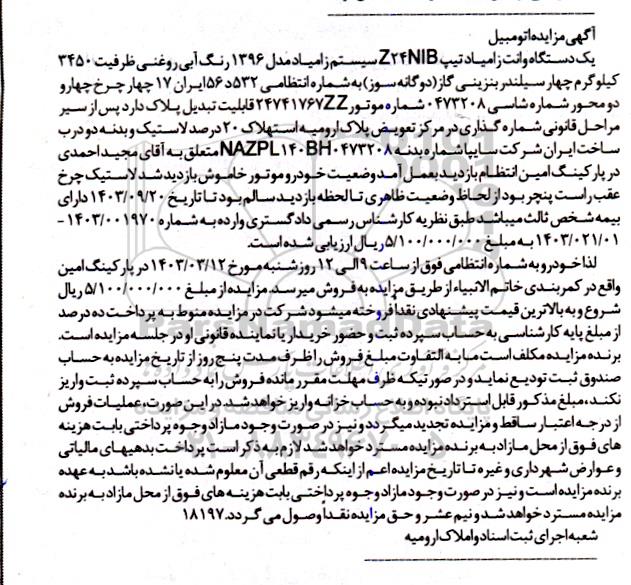 آگهی مزایده اتومبیل
یک دستگاه وانت زامیاد تیپ Z۲۴NIB سیستم زامیاد مدل ۱۳۹۶ رنگ آبی روغنی ظرفیت ۳۴۵۰
کیلوگرم چهار سیلندر بنزینی گاز (دوگانه سوز) به شماره انتظامی ۵۳۲د۵۶ ایران ۱۷ چهار چرخ چهار و
دو محور شماره شاسی ۰۴۷۳۲۰۸ شماره موتور ۲۴۷۴۱۷۶۷ZZ قابلیت تبدیل پلاک دارد پس از سیر
مراحل قانونی شماره گذاری در مرکز تعویض پلاک ارومیه استهلاک ۲۰ درصد لاستیک و بدنه دو درب
ساخت ایران شرکت سایپا شماره بدنه NAZPL۱۴۰BH۰۴۷۳۲۰۸ متعلق به آقای مجید احمدی
در پارکینگ امین انتظام بازدید بعمل آمد وضعیت خودرو موتور خاموش بازدید شد لاستیک چرخ
عقب راست پنچر بود از لحاظ وضعیت ظاهری تا لحظه بازدید سالم بود تا تاریخ ۱۴۰۳/۰۹/۲۰ دارای
بیمه شخص ثالث میباشد طبق نظریه کارشناس رسمی دادگستری وارده به شماره ۱۴۰۳/۰۰۱۹۷۰ -
۱۴۰۳/۰۲۱/۰۱ به مبلغ ۵/۱۰۰/۰۰۰/۰۰۰ ریال ارزیابی شده است.
لذا خودرو به شماره انتظامی فوق از ساعت ۹ الی ۱۲ روز شنبه مورخ ۱۴۰۳/۰۳/۱۲ در پارکینگ امین
واقع در کمربندی خاتم الانبیاء از طریق مزایده به فروش میرسد. مزایده از مبلغ ۵/۱۰۰/۰۰۰/۰۰۰ ریال
شروع و به بالاترین قیمت پیشنهادی نقداً فروخته میشود شرکت در مزایده منوط به پرداخت ده درصد
از مبلغ پایه کارشناسی به حساب سپرده ثبت و حضور خریدار یا نماینده قانونی او در جلسه مزایده است.
برنده مزایده مکلف است مابه التفاوت مبلغ فروش را ظرف مدت پنج روز از تاریخ مزایده به حساب
صندوق ثبت تودیع نماید و در صورتیکه ظرف مهلت مقرر مانده فروش را به حساب سپرده ثبت واریز
نکند، مبلغ مذکور قابل استرداد نبوده و به حساب خزانه واریز خواهد شد. در این صورت، عملیات فروش
از درجه اعتبار ساقط و مزایده تجدید میگردد و نیز در صورت وجود مازاد وجوه پرداختی بابت هزینه
های فوق از محل مازاد به برنده مزایده مسترد خواهد شد لازم به ذکر است پرداخت بدهیهای مالیاتی
و عوارض شهرداری و غیره تا تاریخ مزایده اعم از اینکه رقم قطعی آن معلوم شده یا نشده باشد به عهده
برنده مزایده است و نیز در صورت وجود مازاد وجوه پرداختی بابت هزینه های فوق از محل مازاد به برنده
مزایده مسترد خواهد شد و نیم عشر و حق مزایده نقداً وصول می گردد. ۱۸۱۹۷
شعبه اجرای ثبت اسناد و املاک ارومیه